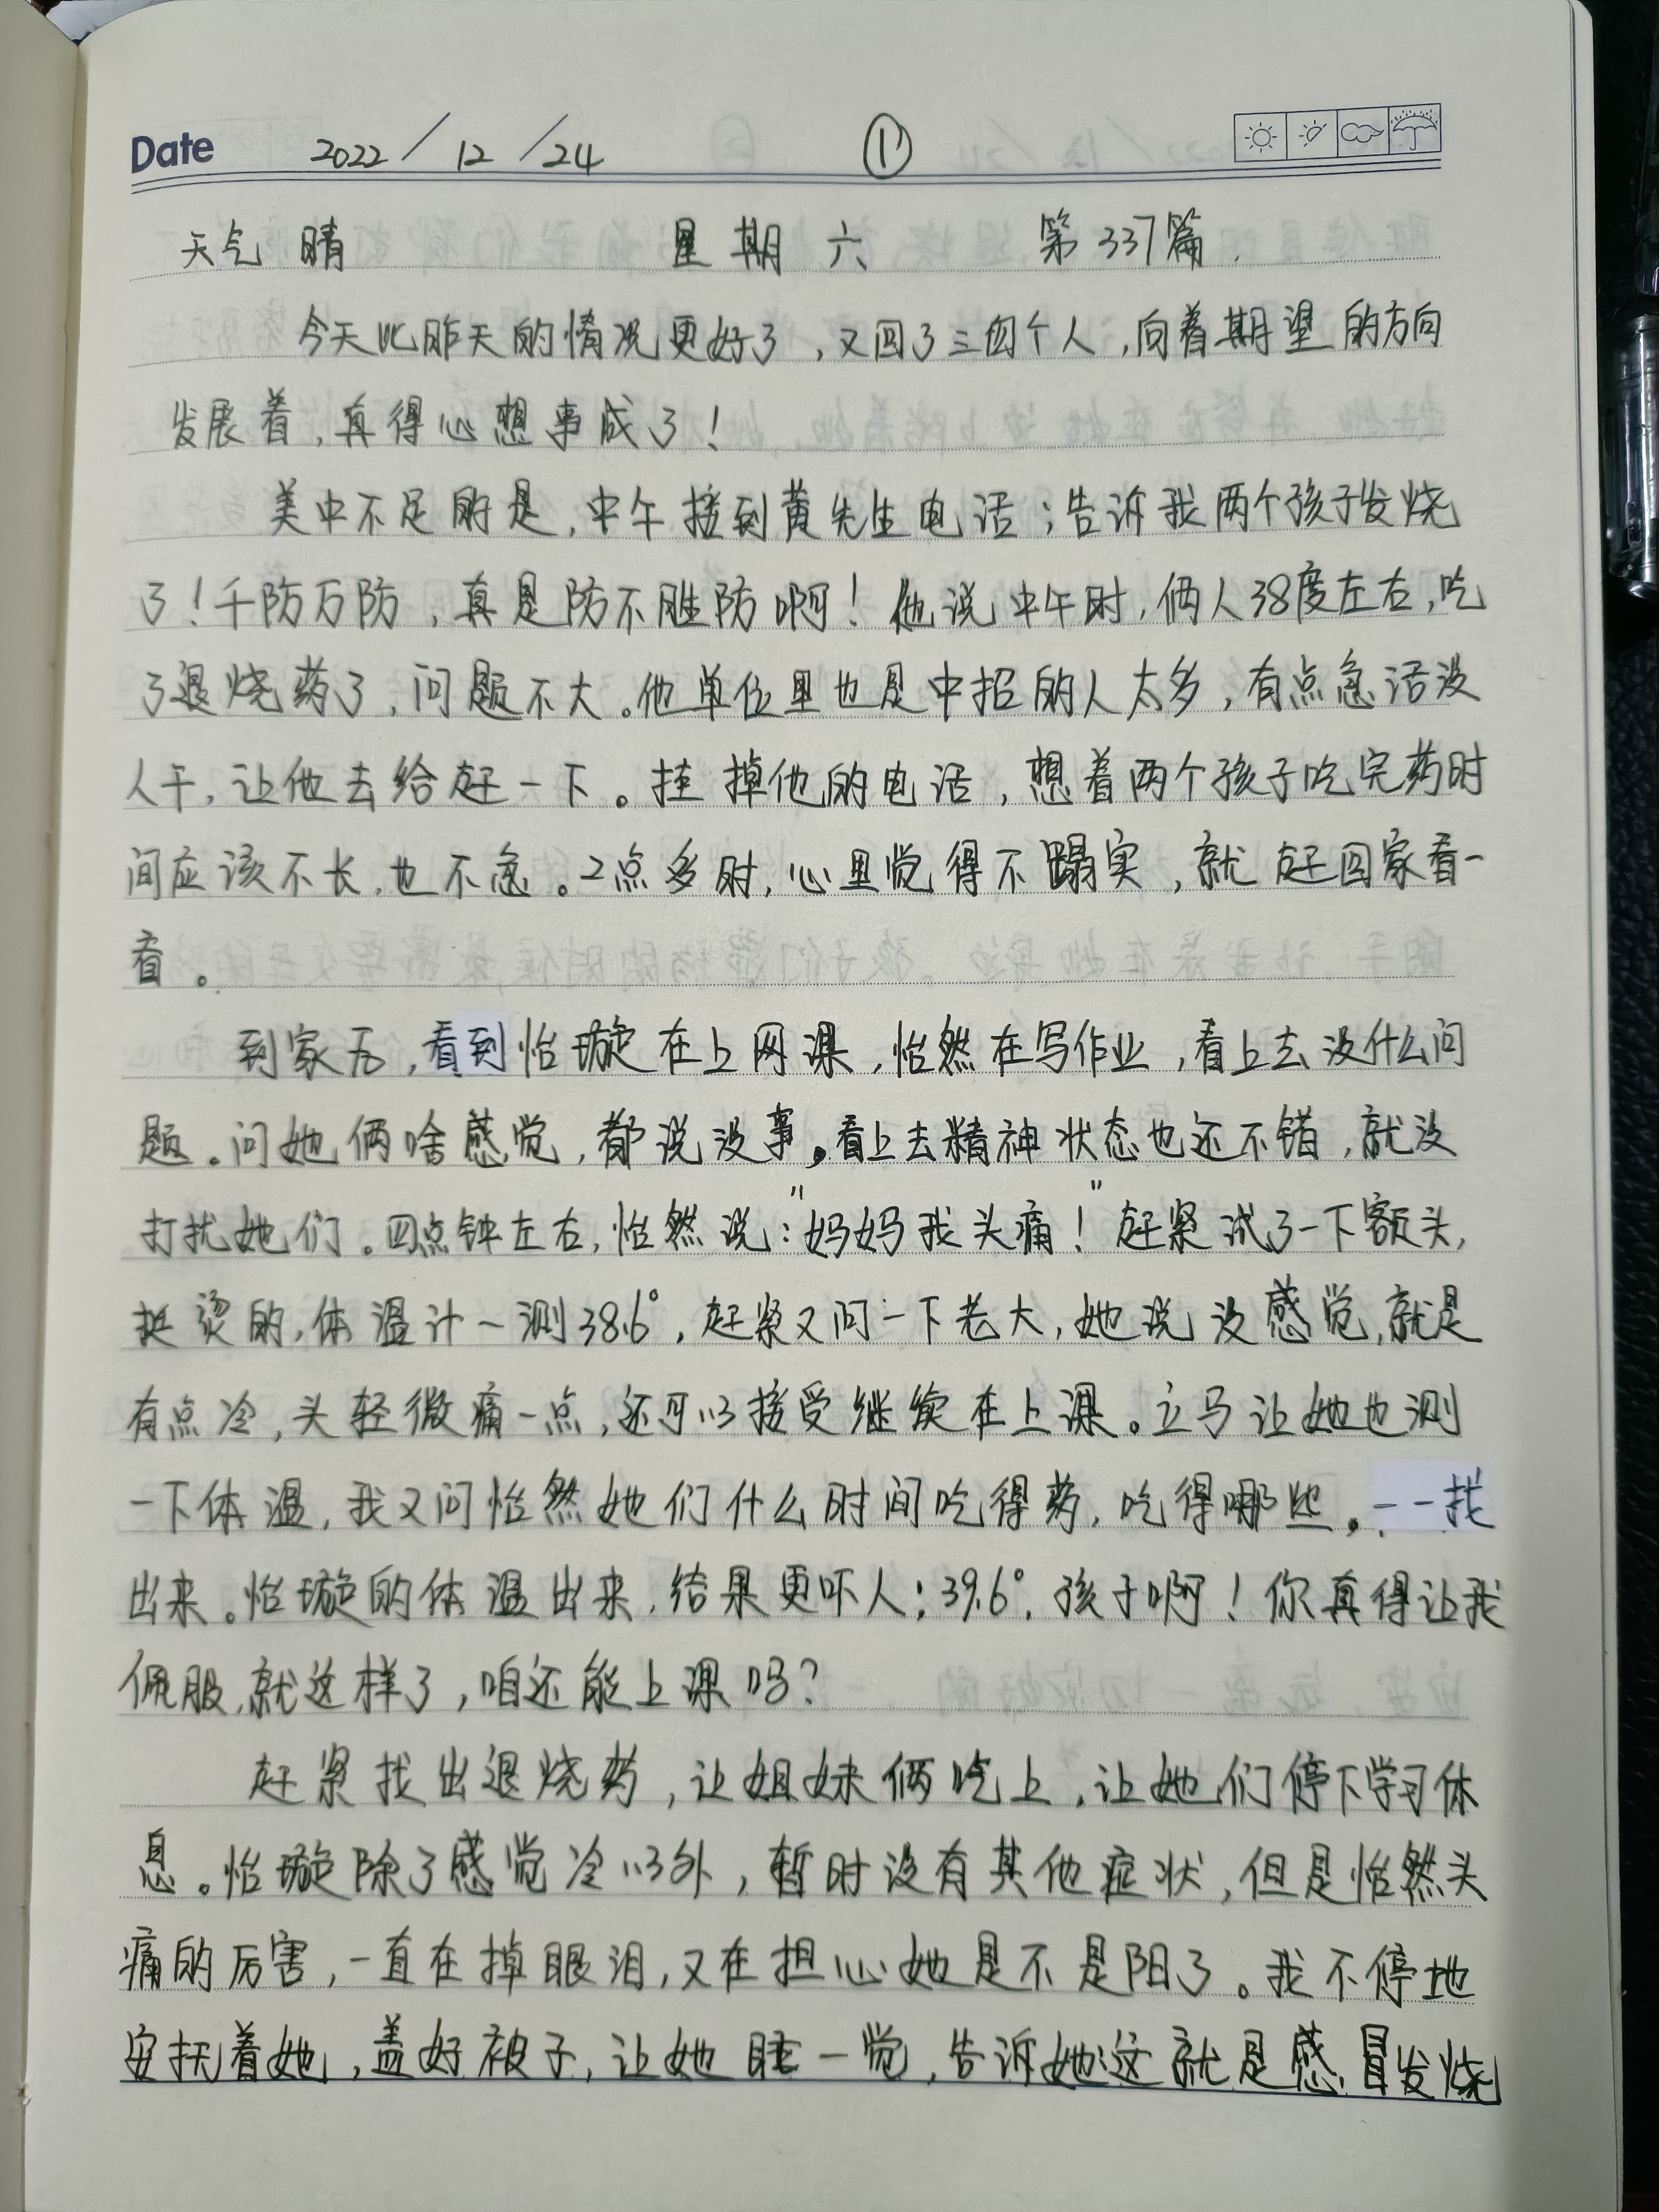 Date 2022/12/24 ①
天气 晴 星期六 第337篇.
今天比昨天的情况更好了,又回了三四个人,向着期望的方向
发展着,真得心想事成了!
美中不足的是,中午接到黄先生电话;告诉我两个孩子发烧
了!千防万防,真是防不胜防啊!他说中午时,俩人38度左右,吃
了退烧药了,问题不大。他单位里也是中招的人太多,有点急活没
人干,让他去给赶一下。挂掉他的电话,想着两个孩子吃完药时
间应该不长,也不急。2点多时,心里觉得不蹋实,就赶回家看一
看。
到家后,看到怡璇在上网课,怡然在写作业,看上去没什么问
题。问她俩啥感觉,都说没事。看上去精神状态也还不错,就没
打扰她们。四点钟左右,怡然说:“妈妈我头痛!”赶紧试了一下额头,
挺烫的,体温计一测38.6°,赶紧又问一下老大,她说没感觉,就是
有点冷,头轻微痛一点,还可以接受继续在上课。立马让她也测
一下体温,我又问怡然她们什么时间吃得药,吃得哪些。一一找
出来。怡璇的体温出来,结果更吓人:39.6°,孩子啊!你真得让我
佩服,就这样了,咱还能上课吗?
赶紧找出退烧药,让姐妹俩吃上,让她们停下学习休
息。怡璇除了感觉冷以外,暂时没有其他症状,但是怡然头
痛的厉害,一直在掉眼泪,又在担心她是不是阳了。我不停地
安抚着她,盖好被子,让她睡一觉,告诉她:这就是感冒发烧